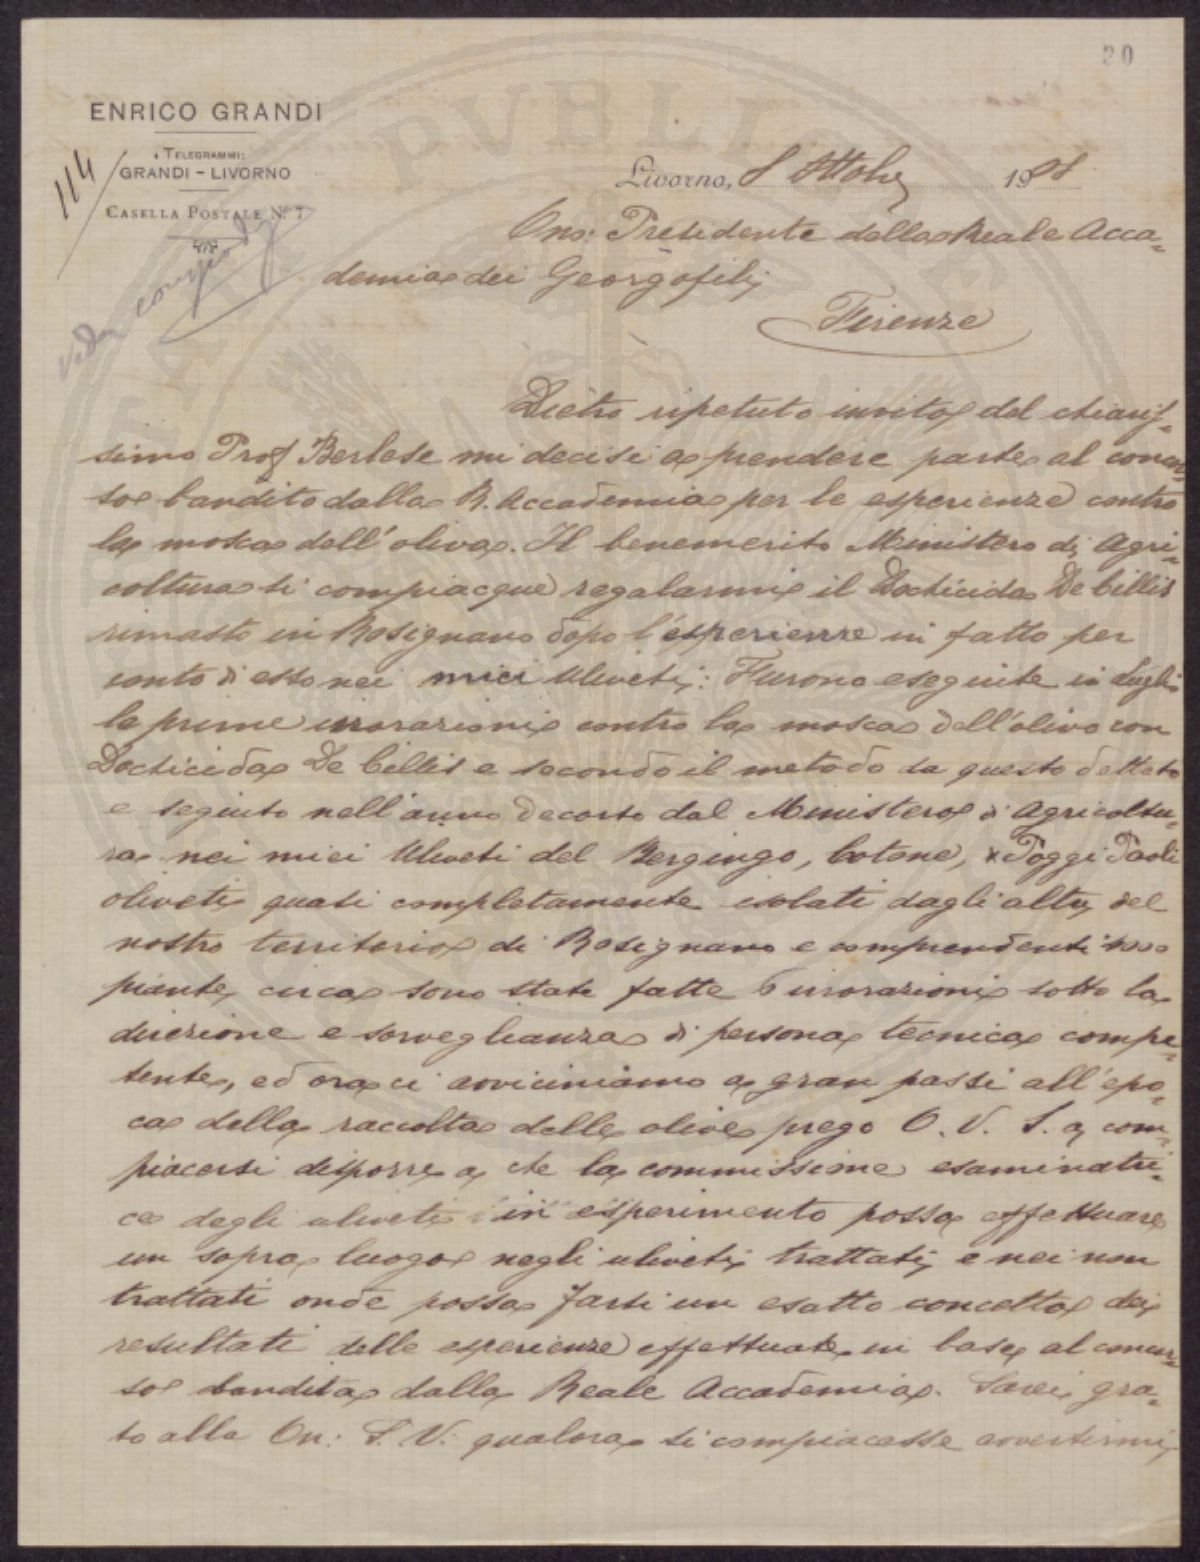 20
ENRICO GRANDI
TELEGRAMMI:
GRANDI - LIVORNO
CASELLA POSTALE N. 7
114
Livorno, 8 Ottobre 1908
Ono: Presidente della Reale Acca=
demia dei Georgofili
Firenze
Dietro ripetuto invito del chiaris=
simo Prof Berlese mi decisi a prendere parte al concor=
so bandito dalla R. Accademia per le esperienze contro
la mosca dell'oliva. Il benemerito Ministero di Agri=
coltura si compiacque regalarmi il Dachicida De Cillis
rimasto in Rosignano dopo l'esperienze in fatto per
conto di esso nei miei uliveti: Furono eseguite in Luglio
le prime irrorazioni contro la mosca dell'olivo con
Dachicida De Cillis e secondo il metodo da questo dettato
e seguito nell'anno decorso dal Ministero di Agricoltu=
ra nei miei Uliveti del Bergingo, Cotone, x Poggi Paoli
oliveti quasi completamente isolati dagli altri del
nostro territorio di Rosignano e comprendenti
piante circa sono state fatte 6 irrorazioni sotto la
direzione e sorveglianza di persona tecnica compe=
tente, ed ora ci avviciniamo a gran passi all'epo=
ca della raccolta delle olive prego O. V. S. a com=
piacersi disporre a che la commissione esaminatri=
ce degli uliveti in esperimento possa effettuare
un sopra luogo negli uliveti trattati e nei non
trattati onde possa farsi un esatto concetto dei
resultati delle esperienze effettuate in base al concor=
so bandito dalla Reale Accademia. Sarei gra=
to alla On: S. V. qualora si compiacesse avvertirmi